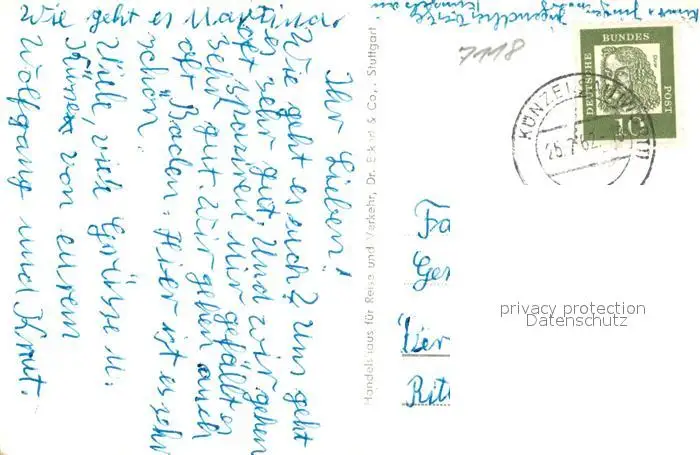 Ihr Lieben!
Wie geht es euch? Uns geht
es sehr gut. Und wir gehen
oft spaziren. Mir gefällt es
sehr gut. Wir gehen auch
oft Baden. Hier ist es sehr
schön.
Viele, viele Grüsse u.
Küsse von eurem
Wolfgang und Knut.
Wie geht es Martina.
Handelshaus für Reise und Verkehr, Dr. Eckert & Co., Stuttgart
7118
DEUTSCHE
BUNDES
POST
Dürer
10
KÜNZELSAU
25.7.62
Fa
Ger
Ritt
privacy protection
Datenschutz